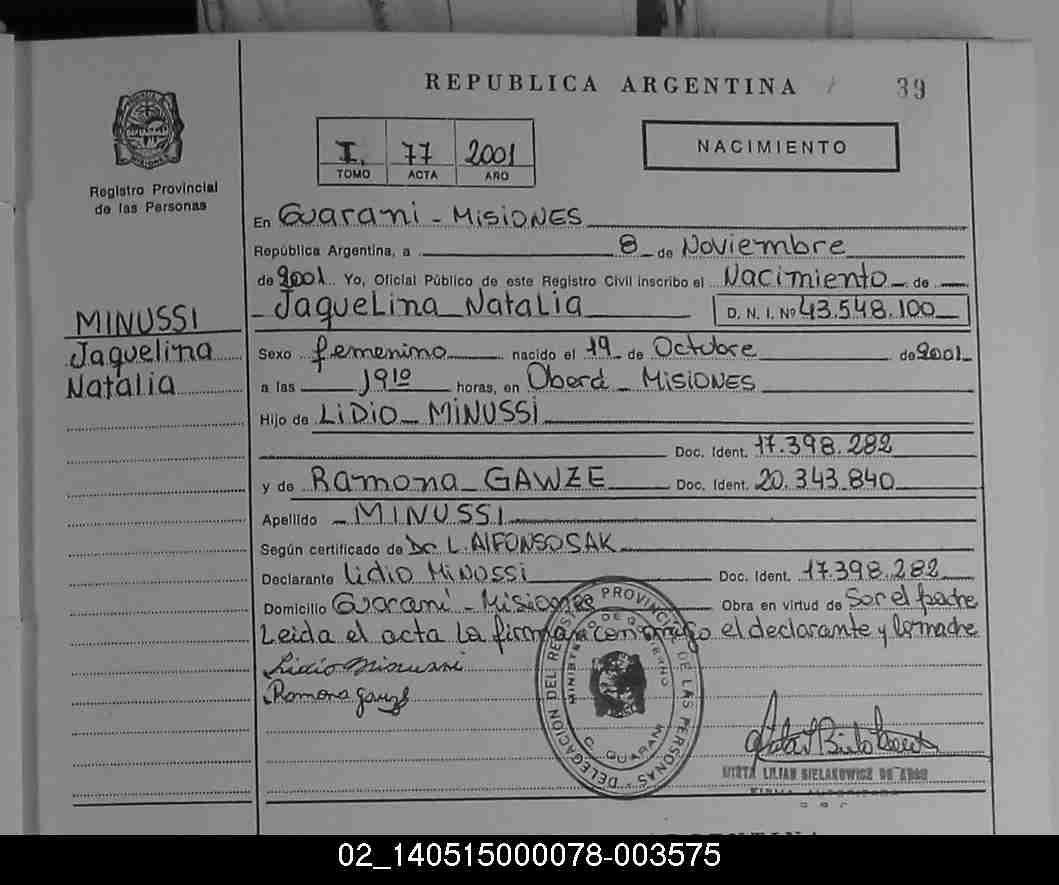 REPUBLICA ARGENTINA
39
I. 77 2001
TOMO ACTA AÑO
NACIMIENTO
Registro Provincial
de las Personas
En Guarani - MISIONES
República Argentina, a 8 de Noviembre
de 2001. Yo, Oficial Público de este Registro Civil inscribo el Nacimiento de
Jaquelina Natalia D. N. I. Nº 43.548.100
MINUSSI
Jaquelina
Natalia
Sexo femenino nacido el 19 de Octubre de 2001
a las 19¹⁰ horas, en Oberá - MISIONES
Hijo de LIDIO - MINUSSI
Doc. Ident. 17.398.282
y de Ramona GAWZE Doc. Ident. 20.343.840
Apellido MINUSSI
Según certificado de Dr L. AlFONSO SAK
Declarante Lidio MINUSSI Doc. Ident. 17.398.282
Domicilio Guaraní - Misiones Obra en virtud de Ser el padre
Leida el acta La firman conmigo el declarante y la madre
Lidio Minussi
Ramona gauze
DELEGACIÓN DEL REGISTRO PROVINCIAL DE LAS PERSONAS
MINISTERIO DE GOBIERNO
GUARANI
MIRTA LILIAN BIELAKOWICZ DE
FIRMA AUTORIZADA
02_140515000078-003575